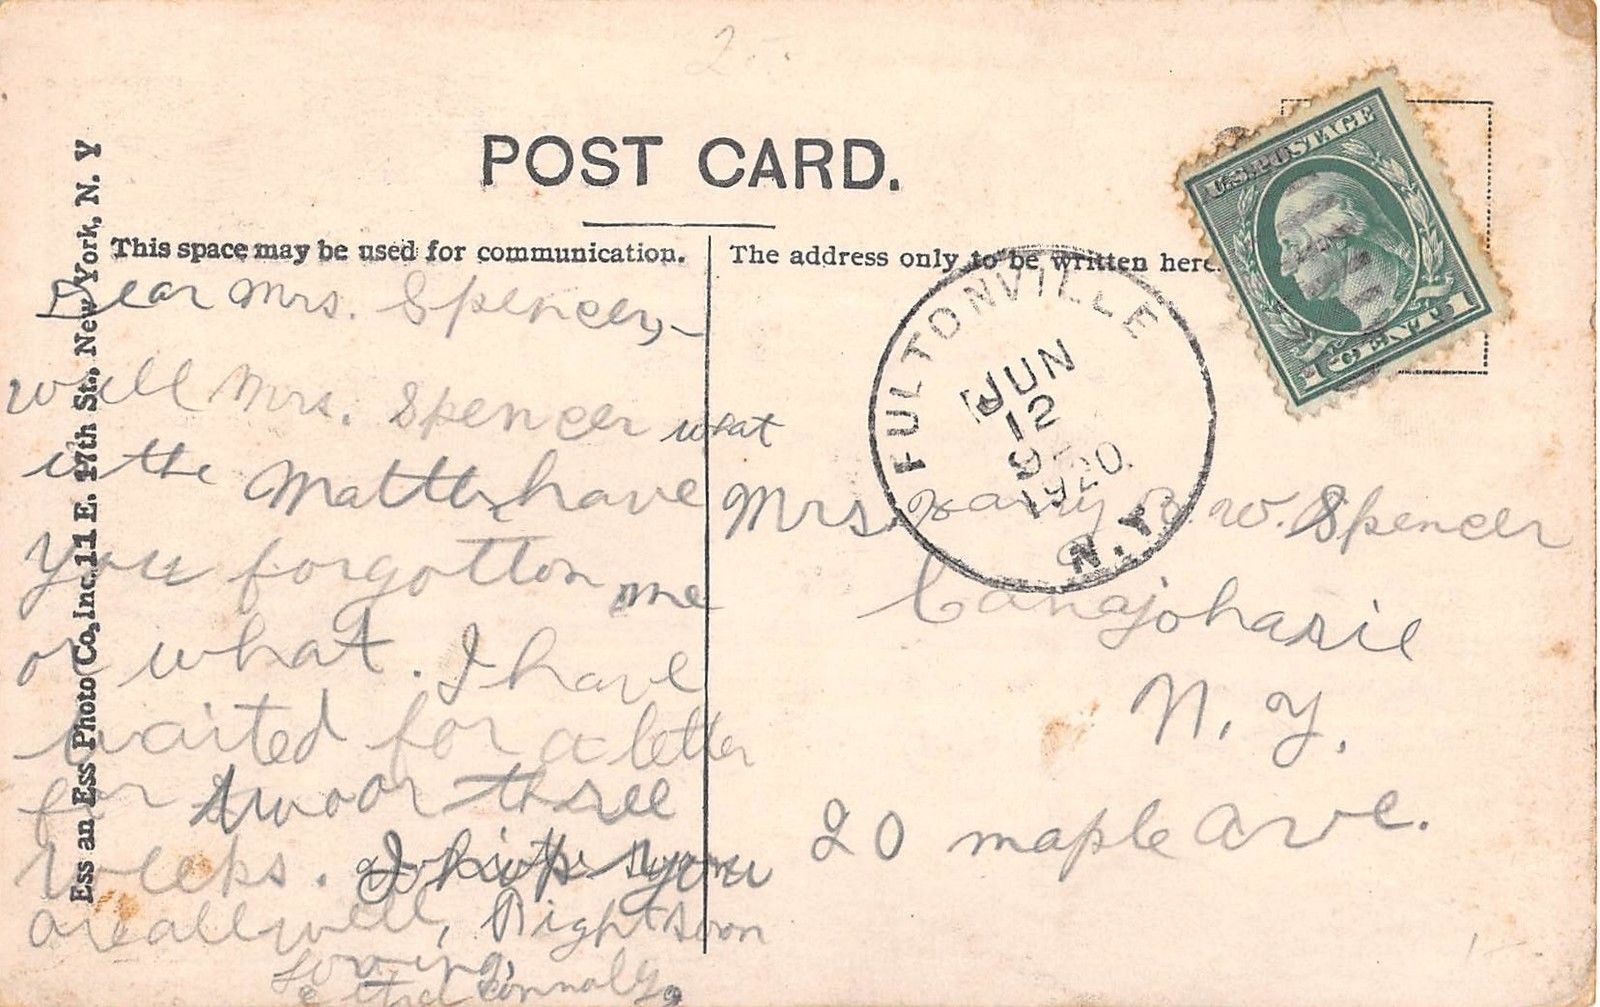 POST CARD.
This space may be used for communication.
The address only to be written here.
Ess an Ess Photo Co., Inc. 11 E. 17th St., New York, N. Y
Dear Mrs. Spencer,-
will Mrs. Spencer what
is the Matter have
you forgotton me
or what. I have
waited for a letter
for two or three
weeks. I hope you
are all well, Right soon
Loving,
Connoly,
U.S. POSTAGE
1 CENT 1
FULTONVILLE
JUN
12
1920
N.Y.
Mrs. Harry W. Spencer
Canajoharie
N. Y.
20 maple Ave.